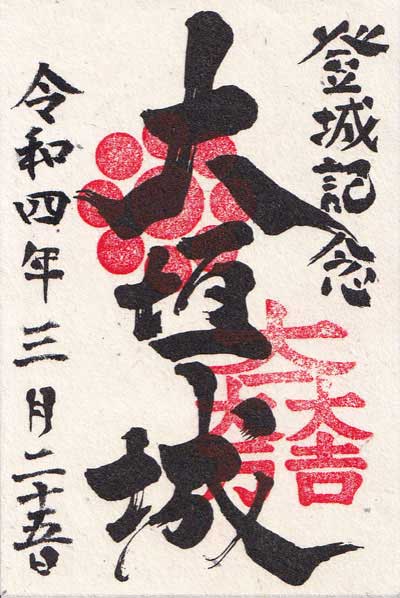 登城記念
大垣城
大一大万大吉
令和四年三月二十五日